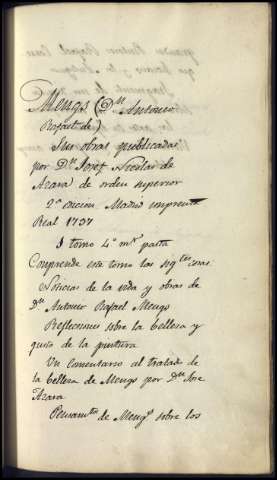 Mengs (Dn Antonio
Rafael de)
Sus obras publicadas
por Dn Josef Nicolas de
Azara de orden superior
2ª edicion Madrid imprenta
Real 1797
1 tomo 4º mr pasta
Comprende este tomo las sigtes cosas:
Noticias de la vida y obras de
Dn Antonio Rafael Mengs
Reflecsiones sobre la belleza y
gusto de la pintura
Un comentario al tratado de
la belleza de Mengs por Dn Jose
Azara
Pensamtos de Mengs sobre los